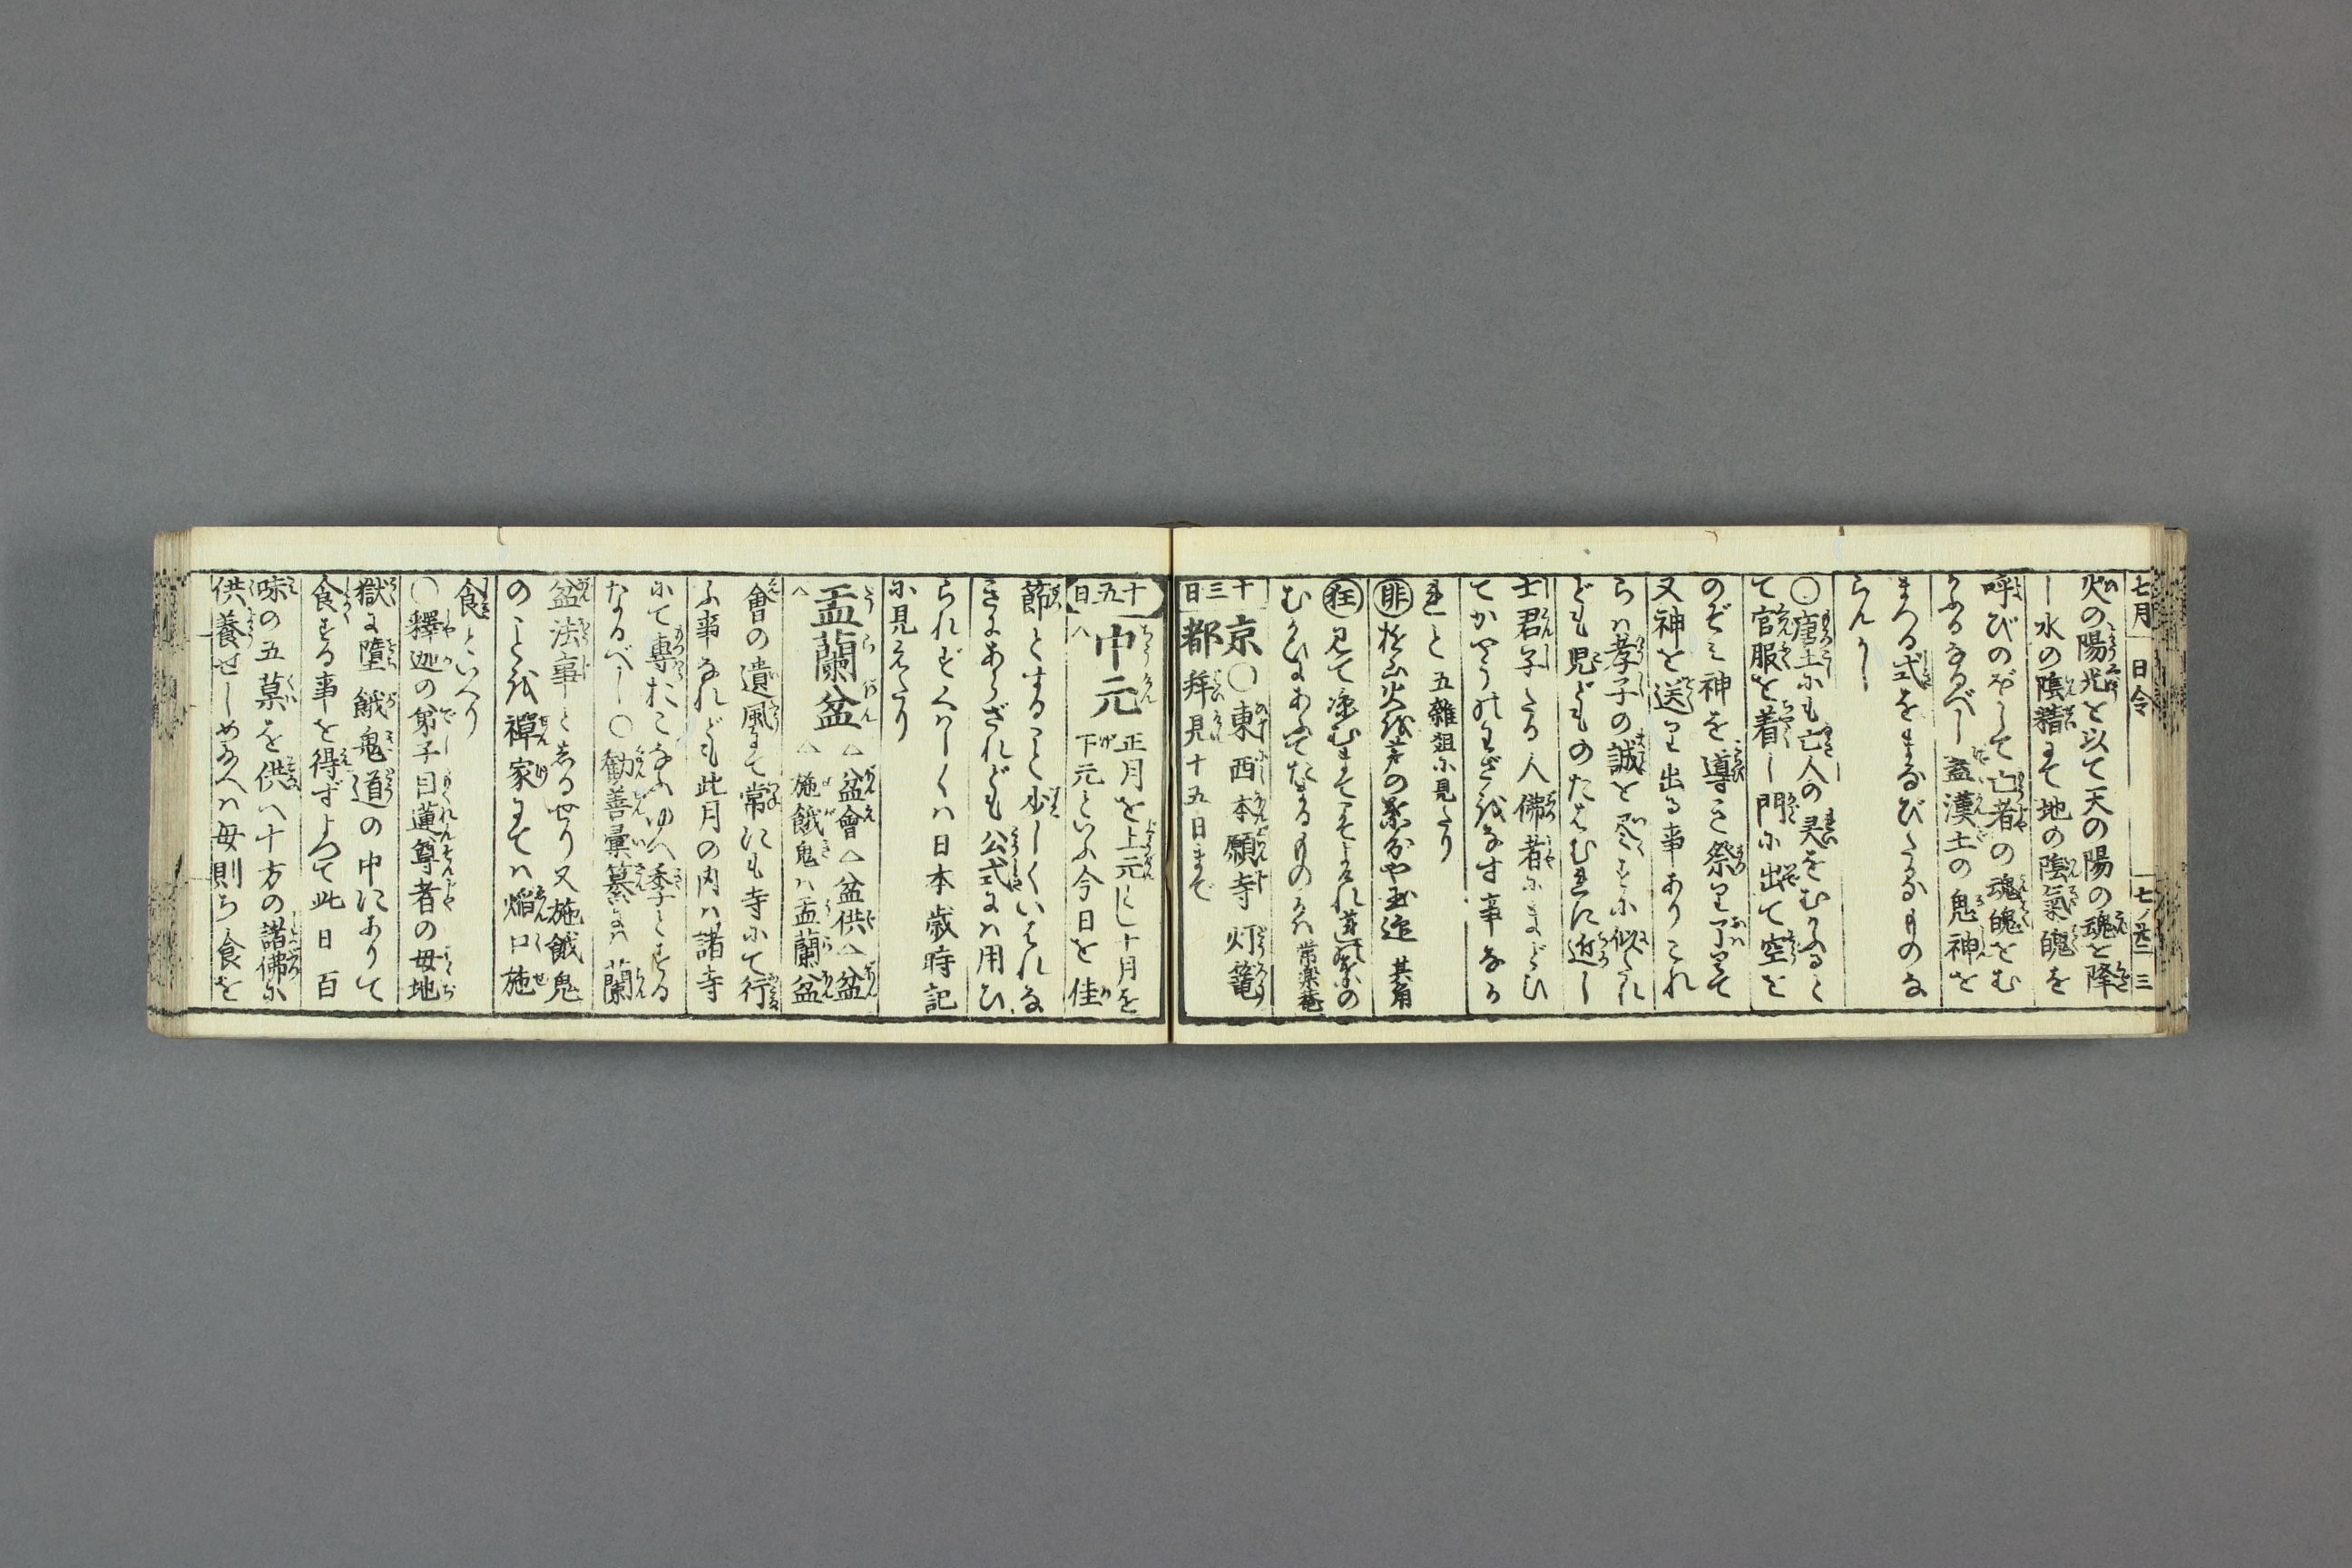 七月 日令 七ノ 三
火の陽光を以て天の陽の魂を降
し水の陰精にて地の陰氣魄を
呼びのぼして亡者の魂魄をむ
かふるなるべし蓋漢土の鬼神を
まつる式をまなびたるものな
らんかし
〇唐土にも亡人の灵をむかふると
て官服を着し門に出て空を
のぞみ神を導き祭り了りて
又神を送り出る事ありこれ
らハ孝子の誠を尽すに似たれ
ども児どものたはむれに近し
士君子たる人佛者にまどひ
てかやうのわざをなす事なか
れと 五雑俎に見えたり
其角
狂 見て涼むまで
むかひにあふてたまるものかハ 常楽菴
十三日 京都 〇東西本願寺灯籠
拜見十五日まで
十五日 中元 正月を上元にし十月を
下元といふ今日を佳
節とすること少しくいはれな
きにあらざれども公式にハ用ひ
られずくハしくハ日本歳時記
に見えたり
盂蘭盆 △盆會△盆供△盆
△施餓鬼ハ盂蘭盆
會の遺風にて常にも寺にて行
ふ事なれども此月の内ハ諸寺
にて専おこなふゆへ季とする
なるべし〇勧善彙纂にハ蘭
盆法事とある也又施餓鬼
のことを禪家にてハ焔口施
食といへり
〇釋迦の弟子目蓮尊者の母地
獄に墮餓鬼道の中にありて
食する事を得ずよつて此日百
味の五菓を供へ十方の諸佛に
供養せしめ給へハ母則ち食を